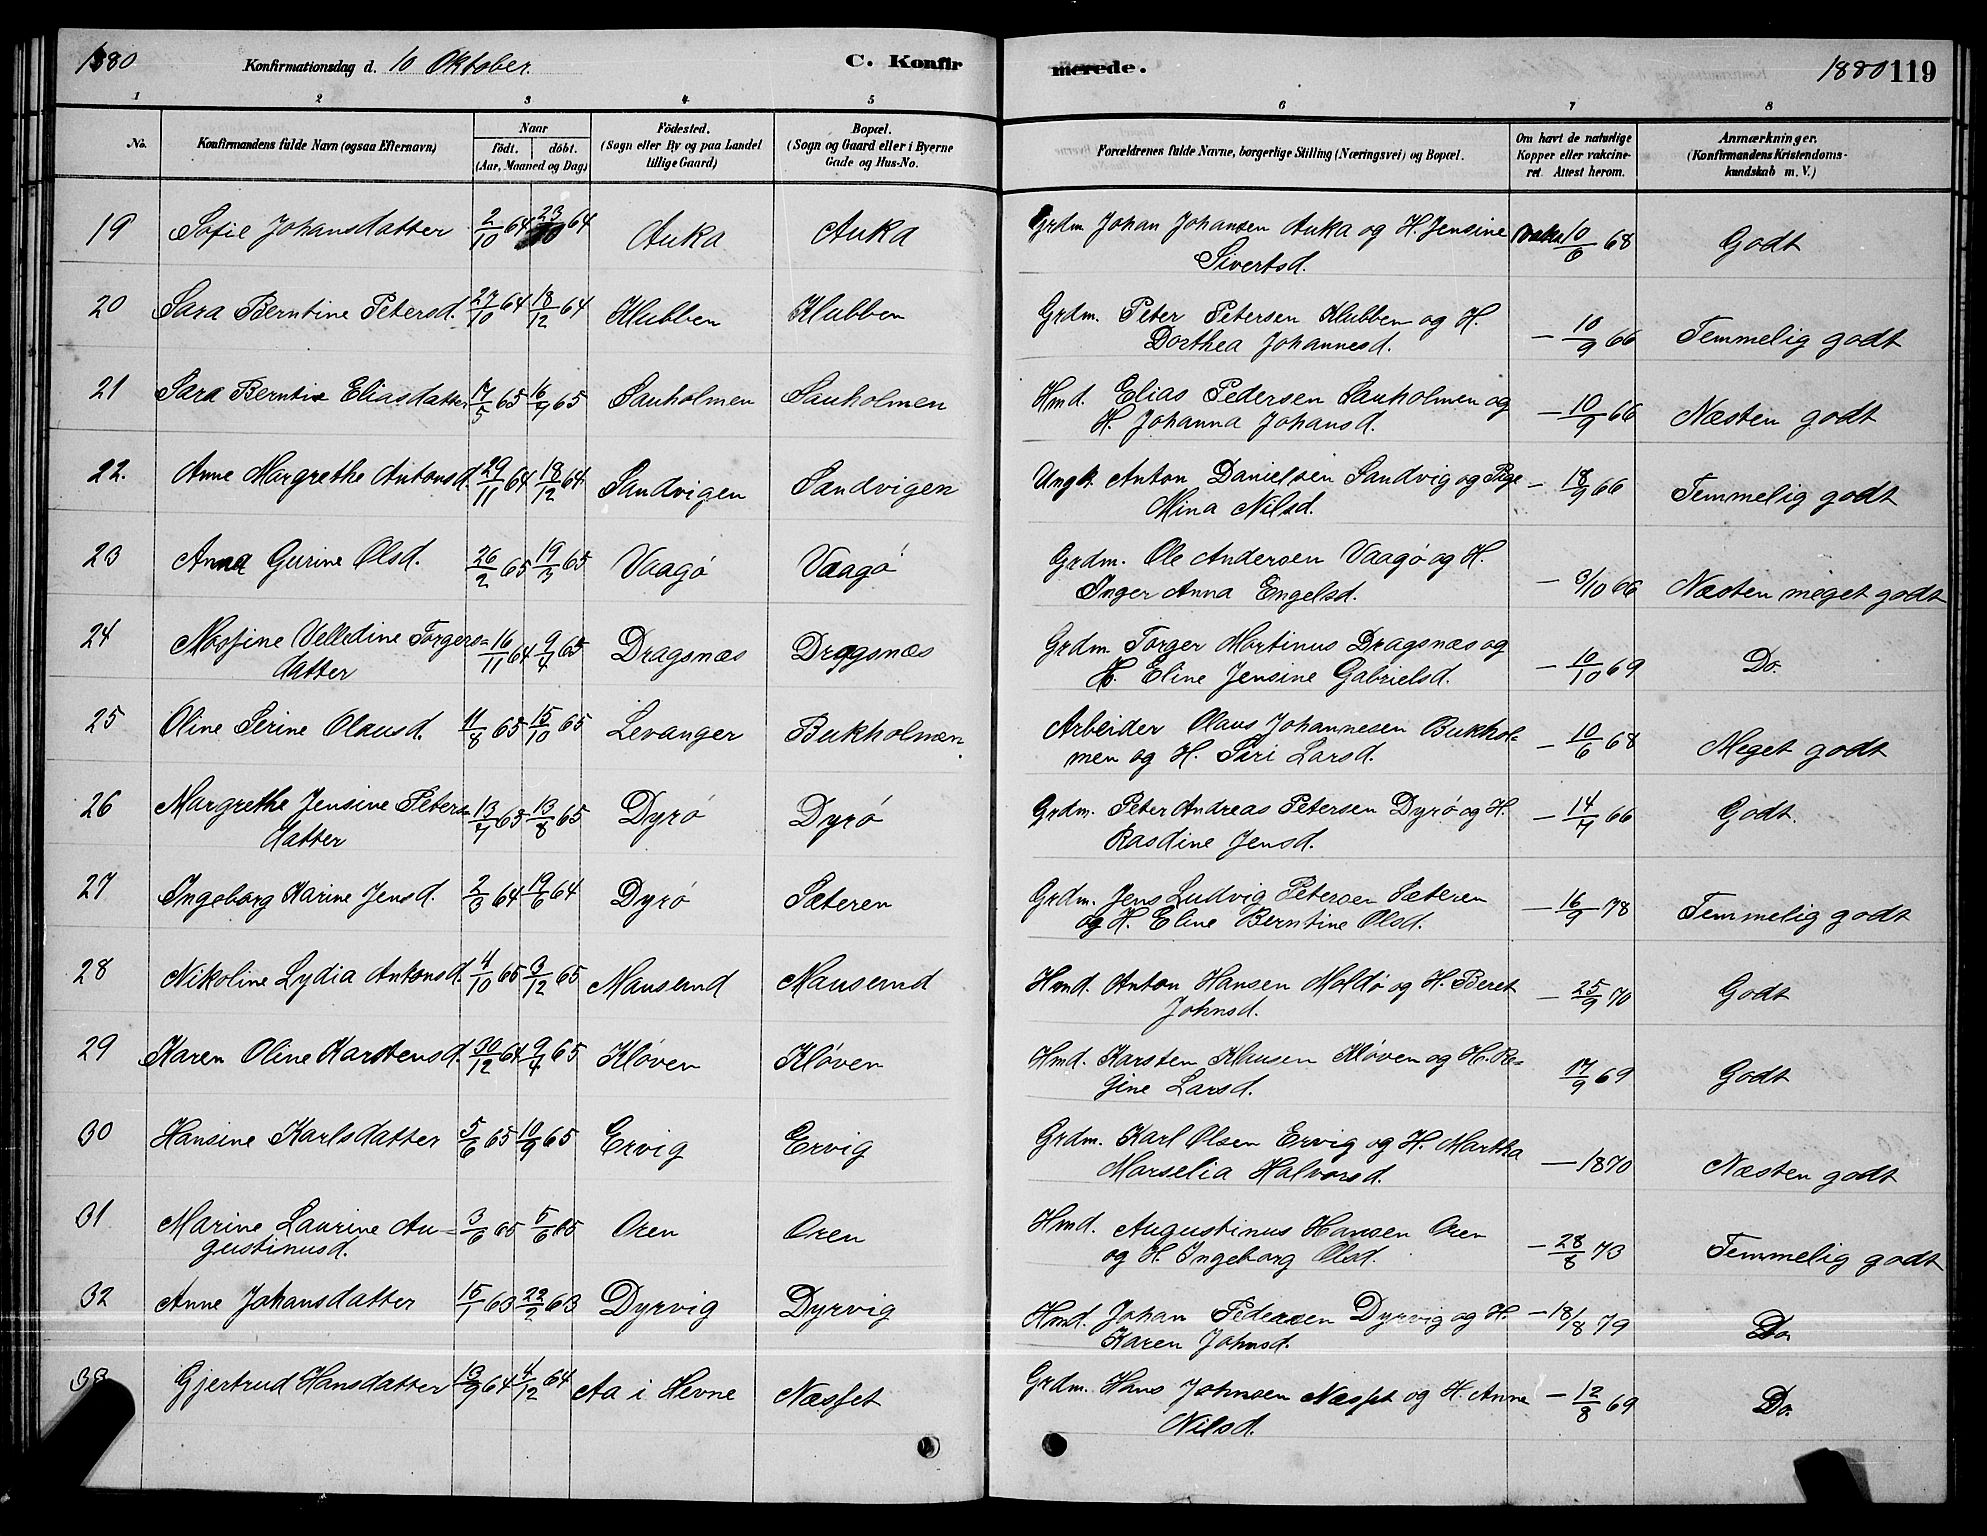 1880 Konfirmationsdag d. 10 Oktober. C. Konfirmerede. 1880 119
1 2 3 4 5 6 7 8
No. Konfirmandens fulde Navn (ogsaa Efternavn) Naar født. døbt. (Aar, Maaned og Dag) Fødested. (Sogn eller By og paa Landet tillige Gaard) Bopæl. (Sogn og Gaard eller i Byerne Gade og Hus-No. Forældrenes fulde Navne, borgerlige Stilling (Næringsvei) og Bopæl. Om havt de naturlige Kopper eller vakcineret. Attest herom. Anmærkninger. (Konfirmandens Kristendomskundskab m. V.)
19 Sofie Johansdatter 2/10 64 23/10 64 Auka Auka Grdm Johan Johansen Auka og H. Jensine Vakc 10/6 68 Godt
Sivertsd.
20 Sara Berntine Petersd. 27/10 64 18/12 64 Klubben Klubben Grdm. Peter Petersen Klubben og H. — 10/9 66 Temmelig godt
Dorthea Johannesd.
21 Sara Berntine Eliasdatter 17/5 65 16/7 65 Sauholmen Sauholmen Hmd. Elias Pedersen Sauholmen og — 10/9 66 Næsten godt
H. Johanna Johansd.
22. Anne Margrethe Antonsd. 29/11 64 18/12 64 Sandvigen Sandvigen Ungk. Anton Danielsen Sandvig og Pige — 18/9 66 Temmelig godt
Mina Nilsd.
23 Anna Gurine Olsd. 26/2 65 19/3 65 Vaagø Vaagø Grdm. Ole Andersen Vaagø og H. — 3/10 66 Næsten meget godt
Inger Anna Engelsd.
24 Velledine Torgers= 16/11 64 9/4 65 Dragsnæs Dragsnæs Grdm Torger Martinus Dragsnæs og — 10/10 69 Do.
datter H. Eline Jensine Gabrielsd.
25 Oline Serine Olausd. 11/8 65 15/10 65 Levanger Bukholmen. Arbeider Olaus Johannesen Bukhol- — 10/6 68 Meget godt
men og H. Siri Larsd.
26 Margrethe Jensine Peters= 13/7 65 13/8 65 Dyrø Dyrø Grdm. Peter Andreas Petersen Dyrø og H. — 14/7 66 Godt.
datter Rasdine Jensd.
27 Ingeborg Karine Jensd. 2/3 64 19/6 64 Dyrø Sæteren Grdm. Jens Ludvig Petersen Sæteren — 16/9 78 Temmelig godt
og H. Eline Berntine Olsd.
28 Nikoline Lydia Antonsd. 4/10 65 3/12 65 Mausund Mausund Hmd. Anton Hansen Moldø og H. Beret — 25/9 70 Godt
Johnsd.
29 Karen Oline Karstensd. 30/12 64 9/4 65 Kløven Kløven Hmd. Karsten Klausen Kløven og H. Re= 17/9 69 Godt
gine Larsd.
30 Hansine Karlsdatter 5/6 65 10/9 65 Ervig Ervig Grdm. Karl Olsen Ervig og H. Martha — 1870 Næsten godt
Marselia Halvorsd.
31 Marine Laurine Au= 3/6 65 5/6 65 Oren Oren Hmd. Augustinus Hansen Oren — 28/8 73 Temmelig godt
gustinusd. og H. Ingeborg Olsd.
32 Anne Johansdatter 15/1 63 22/2 63 Dyrvig Dyrvig Hmd. Johan Pedersen Dyrvig og H. — 18/8 79 Do.
Karen Johnsd.
33 Gjertrud Hansdatter 13/9 64 4/12 64 Aa i Hevne Næsset Grdm. Hans Johnsen Næsset og H. Anne — 12/8 69 Do.
Nilsd.